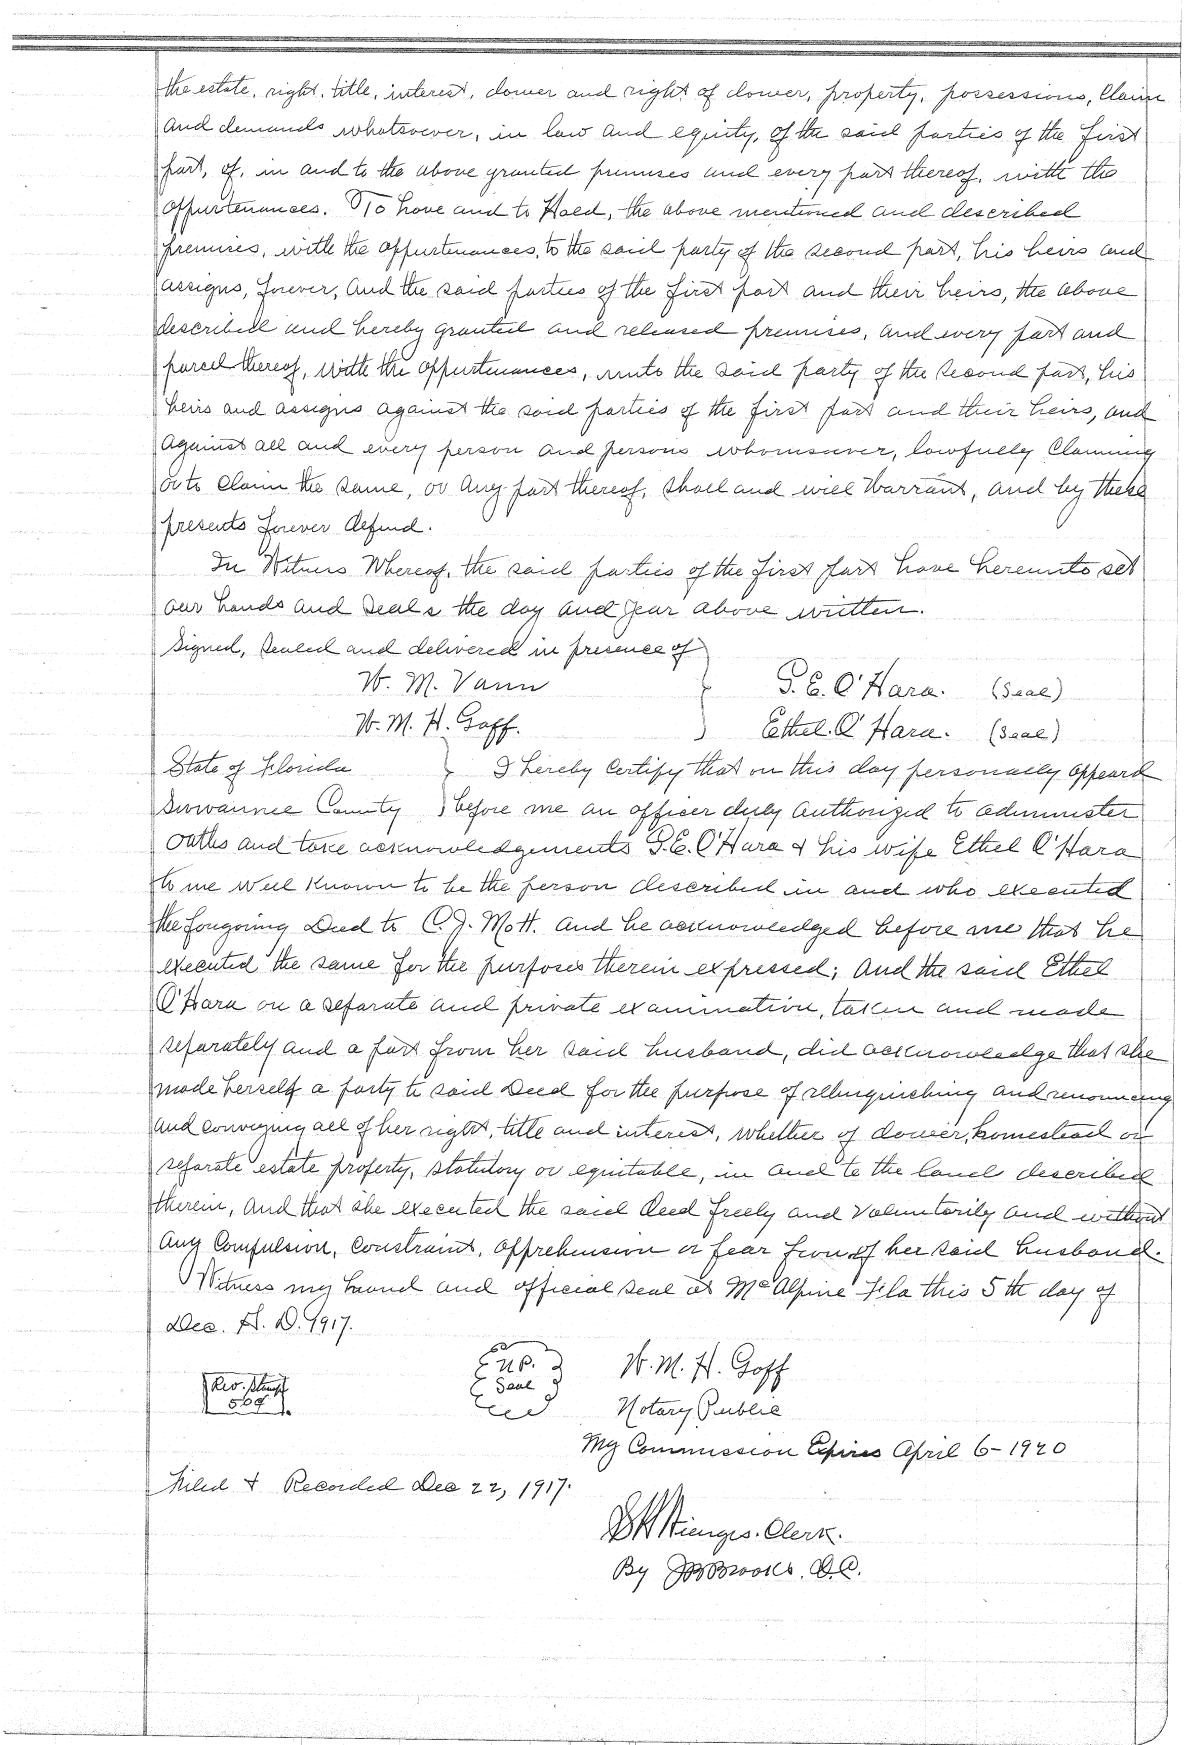 the estate, right, title, interest, dower and right of dower, property, possessions, Claim
and demands whatsoever, in law and equity, of the said parties of the first
part, of, in and to the above granted premises and every part thereof, with the
appurtenances. To have and to Hold, the above mentioned and described
premises, with the appurtenances, to the said party of the second part, his heirs and
assigns, forever, And the said parties of the first part and their heirs, the above
described and hereby granted and released premises, and every part and
parcel thereof, with the appurtenances, unto the said party of the second part, his
heirs and assigns against the said parties of the first part and their heirs, and
against all and every person and persons whomsoever, lawfully Claiming
or to Claim the same, or any part thereof, shall and will Warrant, and by these
presents forever defend.
In Witness Whereof, the said parties of the first part have hereunto set
our hands and seals the day and year above written.
Signed, Sealed and delivered in presence of
W. M. Vann
W. M. H. Goff.
E. O'Hara. (Seal)
Ethel O'Hara. (Seal)
State of Florida I hereby certify that on this day personally appeard
Suwannee County before me an officer duly authorized to administer
oaths and take acknowledgements E. O'Hara & his wife Ethel O'Hara
to me well known to be the person described in and who executed
the forgoing Deed to C. J. Mott. and he acknowledged before me that he
executed the same for the purposes therein expressed; And the said Ethel
O'Hara on a separate and private examination, taken and made
separately and a part from her said husband, did acknowledge that she
made herself a party to said Deed for the purpose of relinquishing and renouncing
and conveying all of her right, title and interest, whether of dower, homestead or
separate estate property, statutory or equitable, in and to the land described
therein, and that she executed the said deed freely and voluntarily and without
any Compulsion, constraint, apprehension or fear from of her said husband.
Witness my hand and official seal at McAlpine Fla this 5th day of
Dec. A. D. 1917.
N.P.
Seal
W. M. H. Goff
Rev. Stamp
50¢
Notary Public
My Commission Expires April 6-1920
Filed & Recorded Dec 22, 1917.
Clerk.
By J B Brooks. D.C.